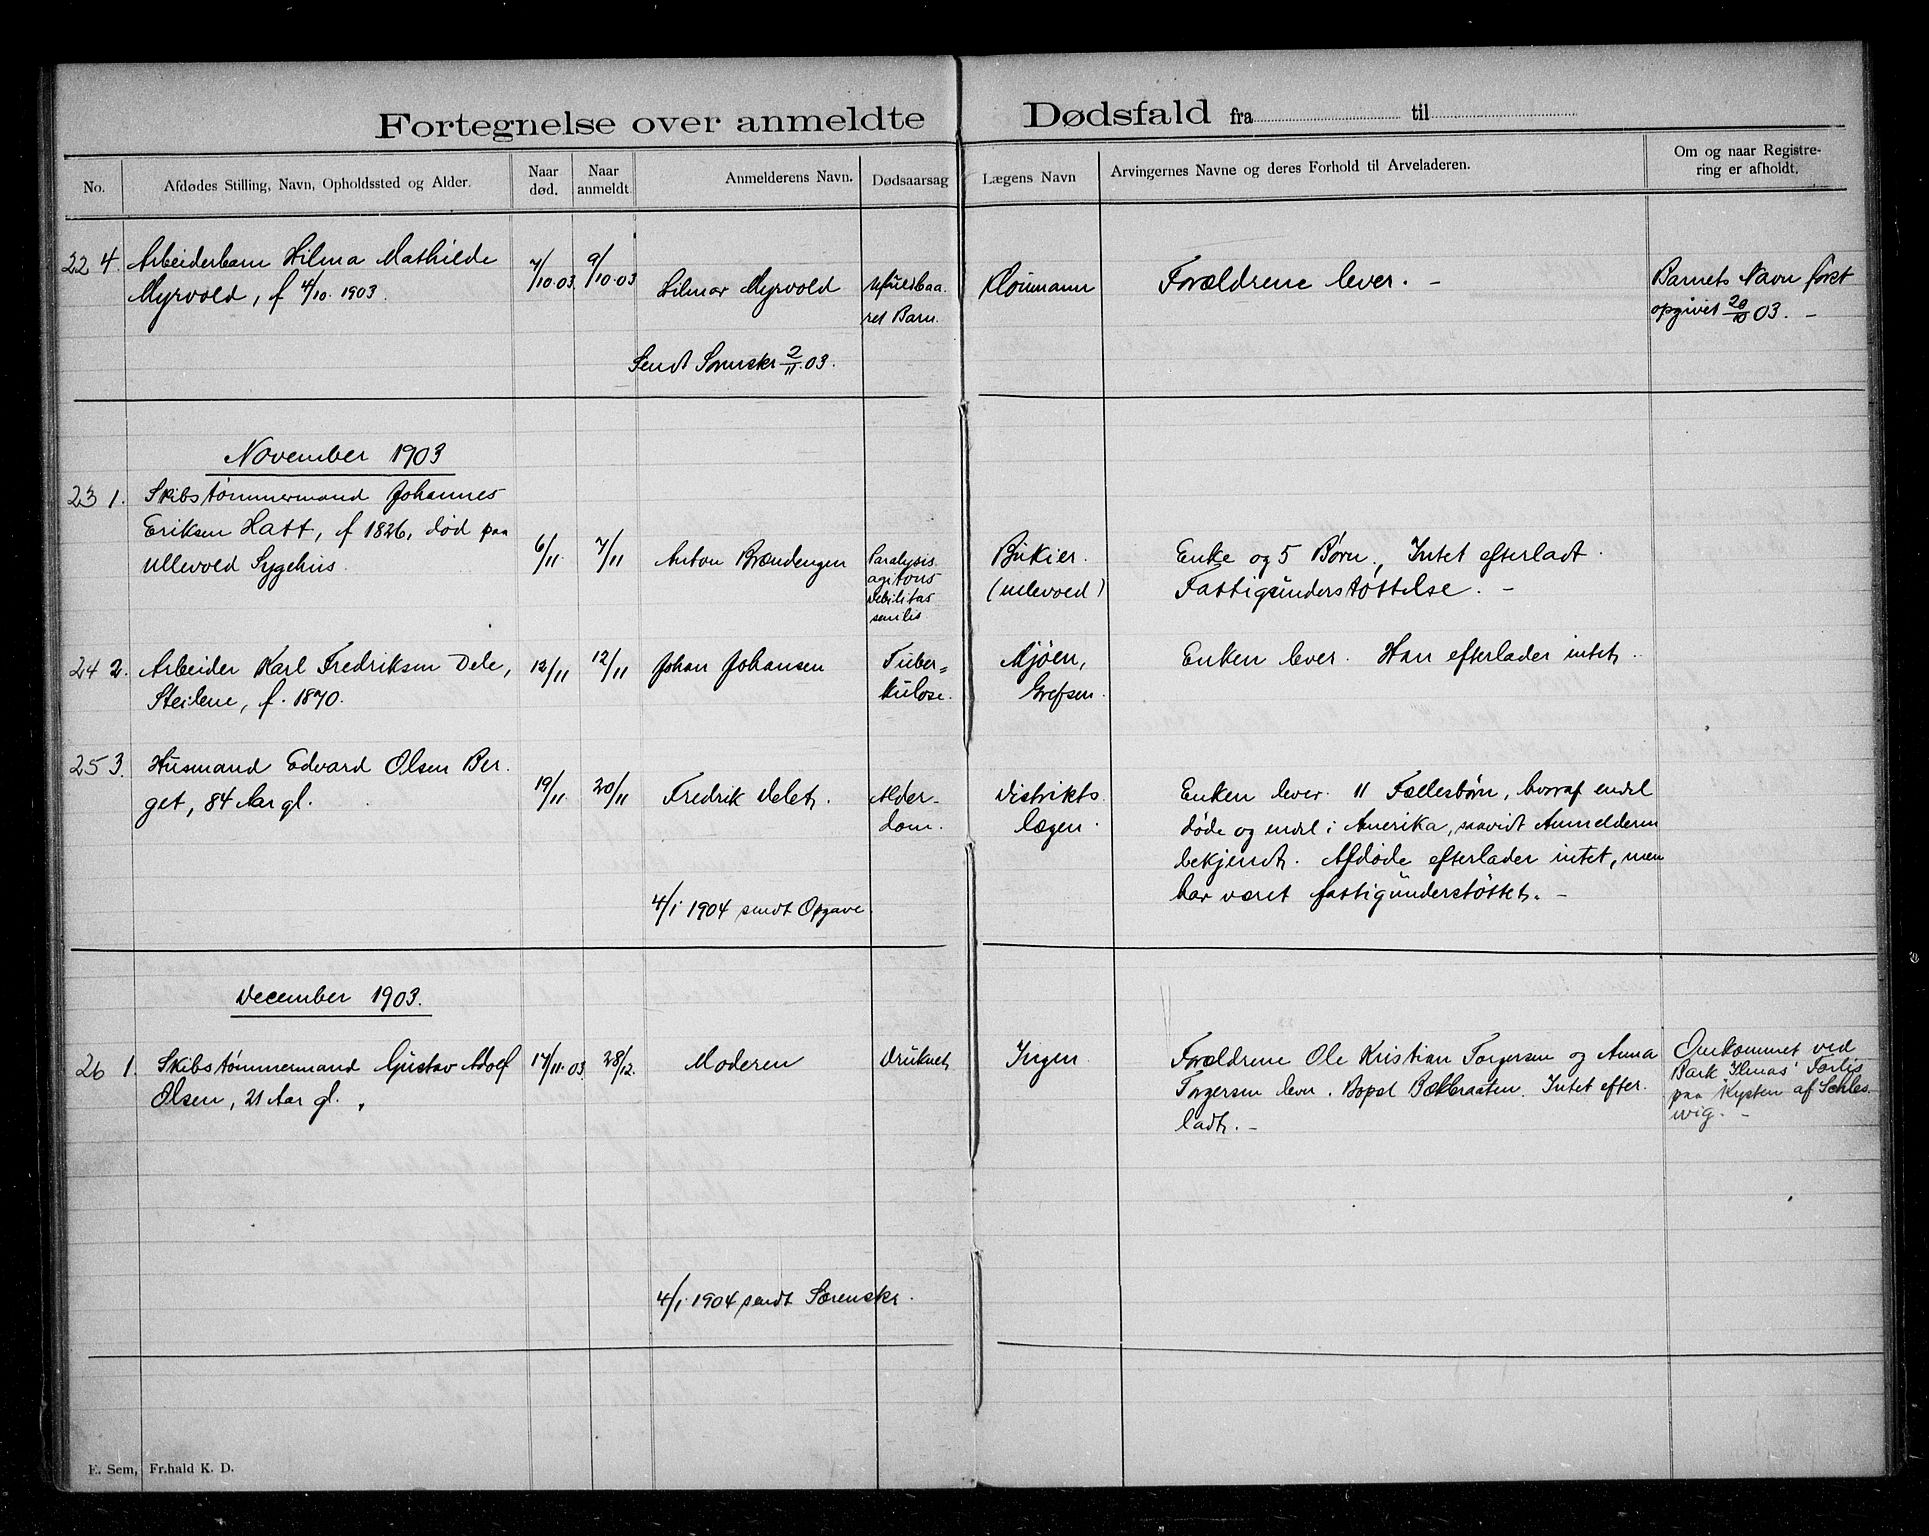 Fortegnelse over anmeldte Dødsfald fra til
No.
Afdødes Stilling, Navn, Opholdssted og Alder.
Naar
død.
Naar
anmeldt.
Anmelderens Navn.
Dødsaarsag
Lægens Navn
Arvingernes Navne og deres Forhold til Arveladeren.
Om og naar Registre-
ring er afholdt.
22 4. Arbeiderbarn Hilma Mathilde
Myrvold, f 4/10. 1903.
7/10.03
9/10.03
Hilmar Myrvold
Ufuldbaa-
ret Barn.
Forældrene lever. –
Barnets Navn først
opgivet 20/10 03. –
Sendt Sorenskr 2/11.03.
November 1903
23 1. Skibstømmermand Johannes
Eriksen Hatt, f 1826, død paa
Ullevold Sygehus.
6/11.
7/11
Anton Brændengen
Paralysis
agitans
Debilitas
senilis
(Ullevold)
Enke og 5 Børn., Intet efterladt.
Fattigunderstøttelse. –
24 2. Arbeider Karl Fredriksen Dele,
Steilene, f. 1870.
12/11
12/11
Johan Johansen
Tuber-
kulose.
Mjøen,
Grefsen.
Enken lever. Han efterlader intet.
25 3. Husmand Edvard Olsen Ber-
get, 84 Aar gl.
19/11.
20/11
Fredrik Delet.
Alder-
dom.
Distrikts
lægen.
Enken lever. 11 Fællesbørn, hvoraf endel
døde og endel i Amerika, saavidt Anmelderen
bekjendt. Afdøde efterlader intet, men
har været fattigunderstøttet. –
4/1. 1904 sendt Opgave.
December 1903.
26 1. Skibstømmermand Gustav Adolf
Olsen, 21 Aar gl.
17/11.03
28/12.
Moderen
Druknet
Ingen
Forældrene Ole Kristian Torgersen og Anna
Torgersen lever. Bopæl Bækbraaten. Intet efter-
ladt. –
Omkommet ved
Bark "Ilmas" Forlis
paa Kysten af Schles-
wig. –
4/1. 1904 sendt Sorenskr.
E. Sem, Fr.hald K. D.